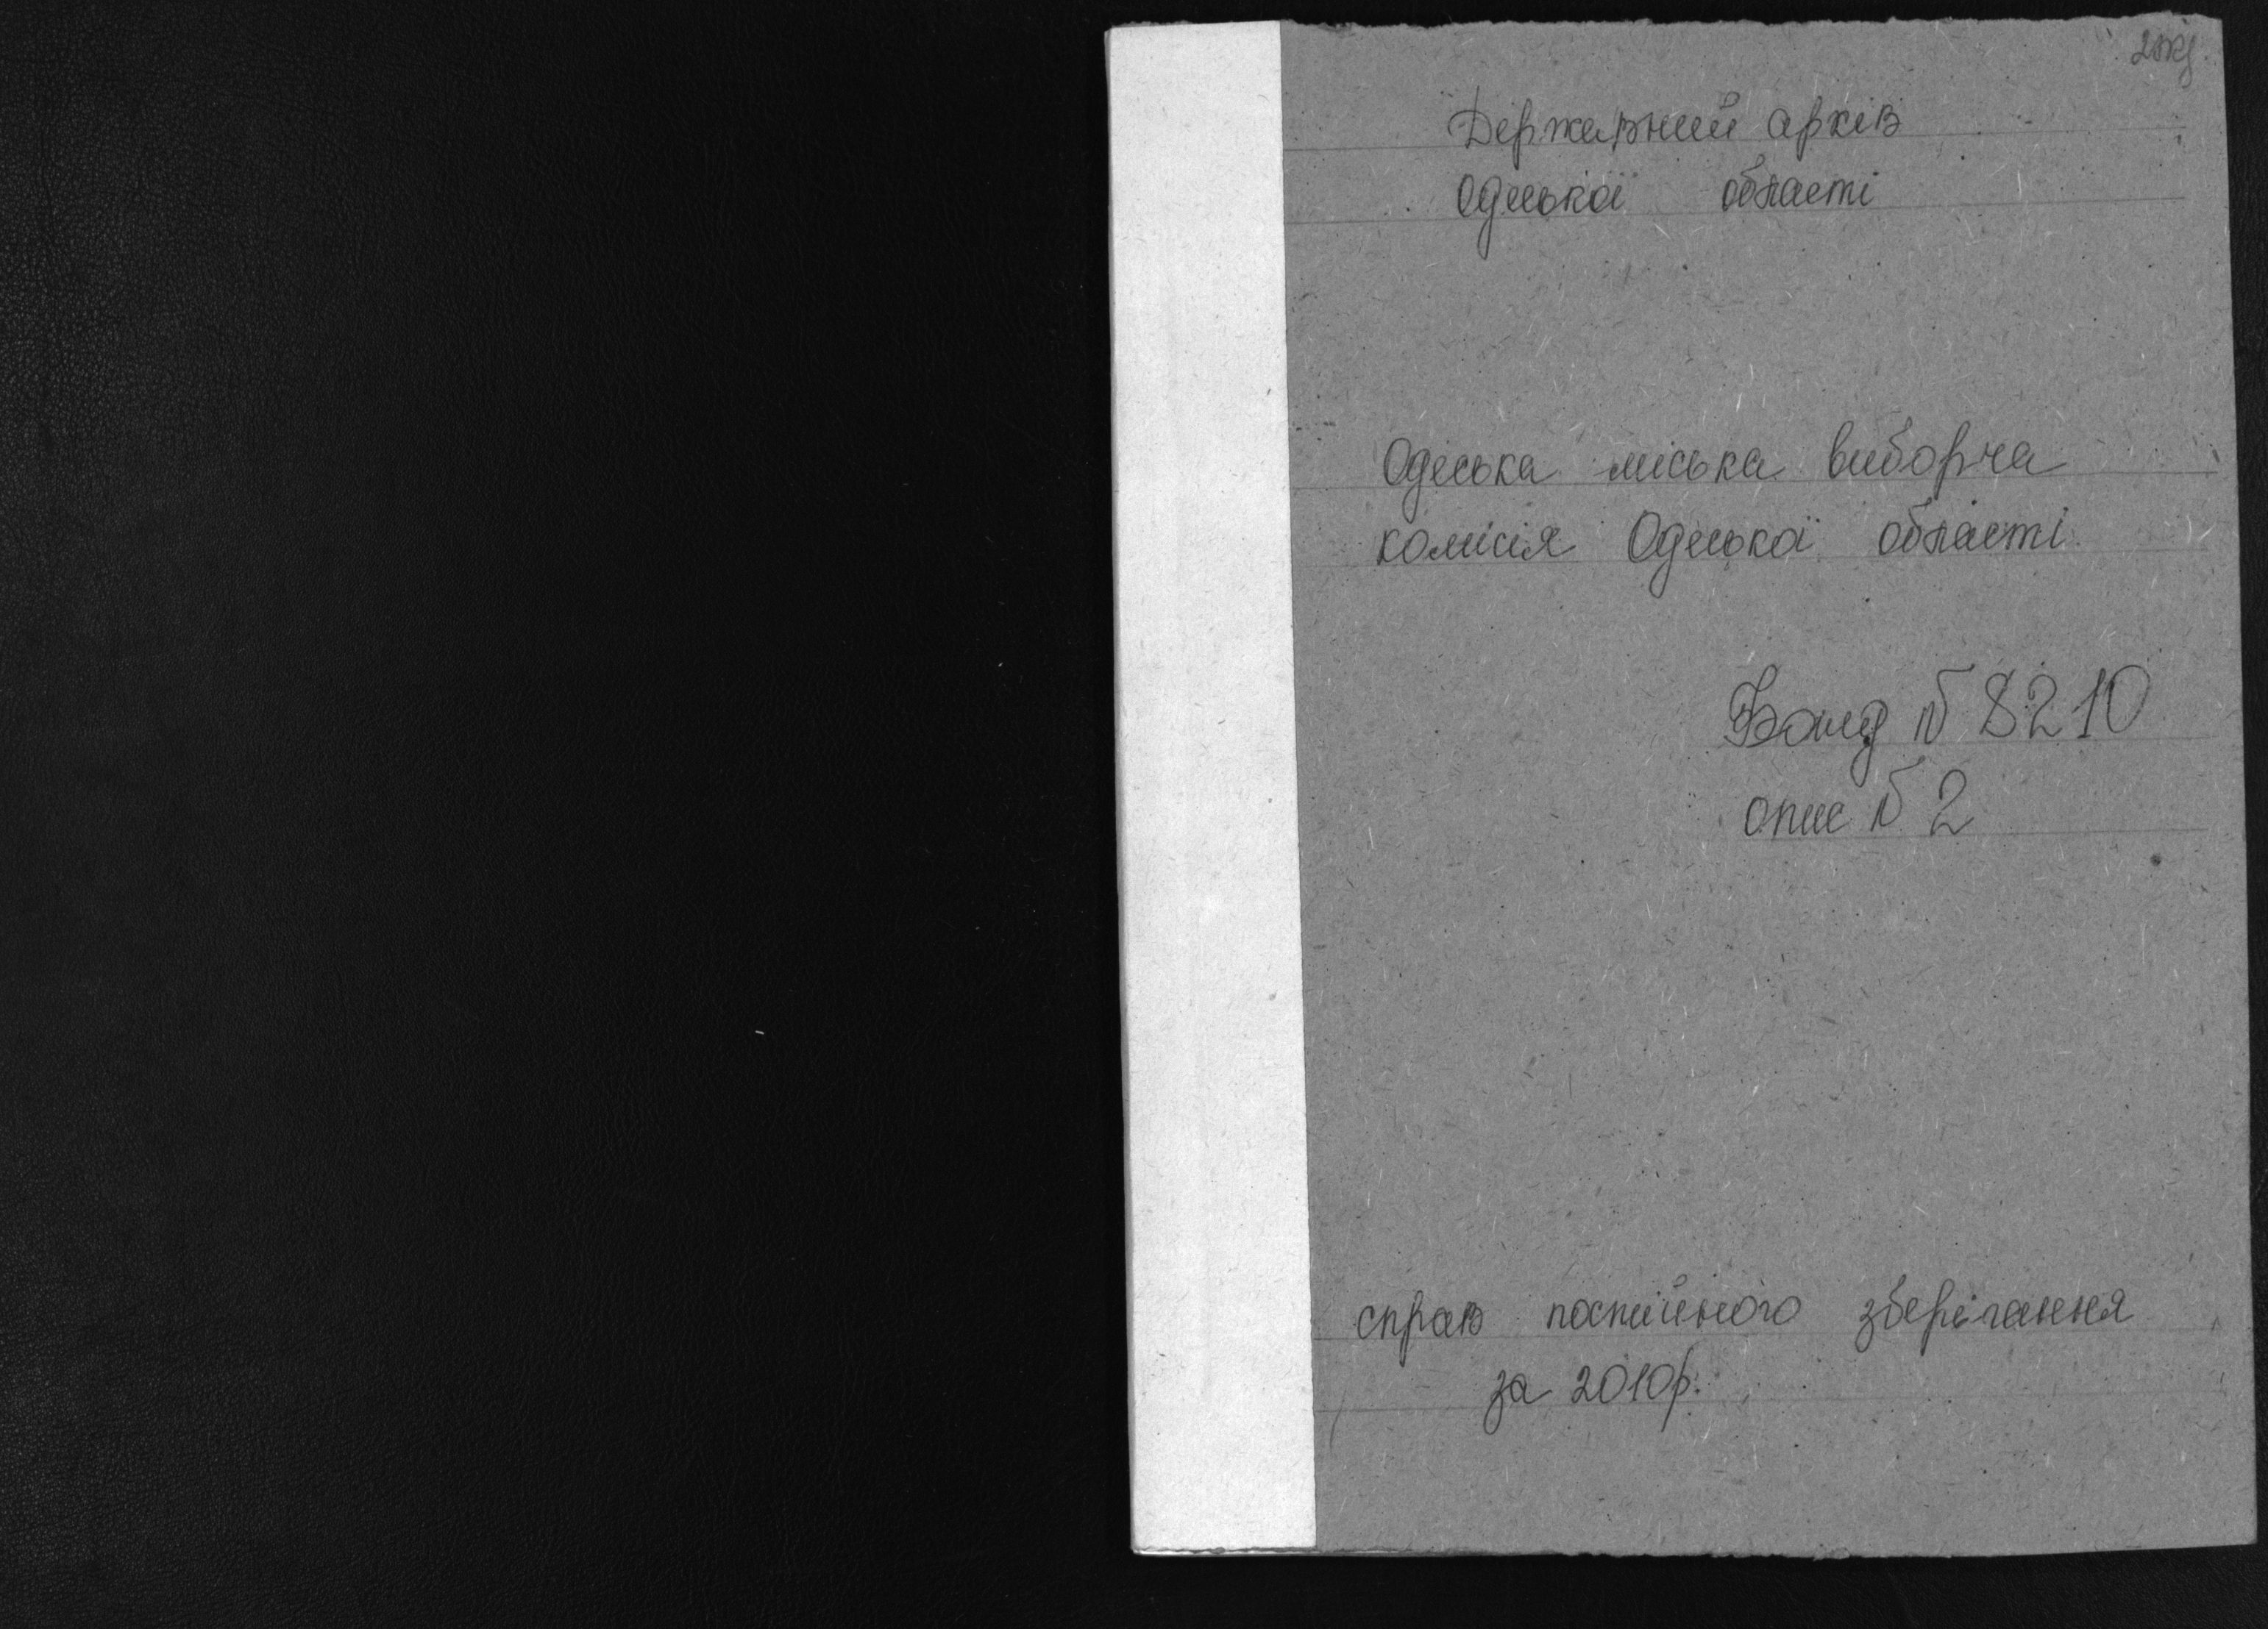 Державний архів
Одеської області
Одеська міська виборча
комісія Одеської області
Фонд № 8210
опис № 2
справ постійного зберігання
за 2010р.